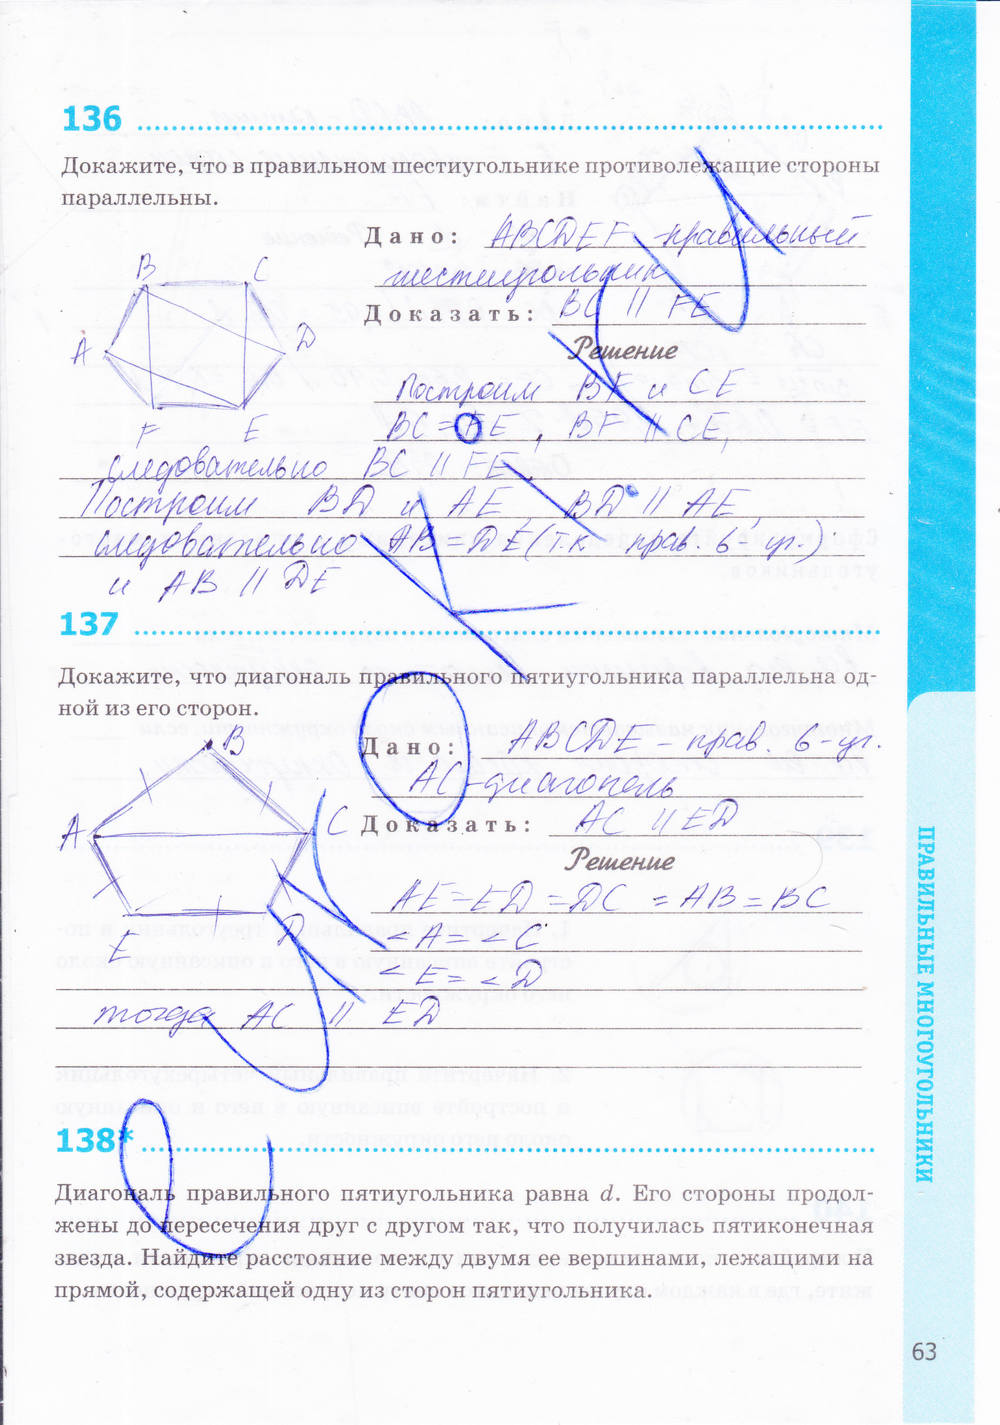 136
Докажите, что в правильном шестиугольнике противолежащие стороны
параллельны.
Дано: ABCDEF - правильный
шестиугольник
Доказать: BC || FE
Решение
Построим BF и CE
BC = FE, BF || CE,
следовательно BC || FE
Построим BD и AE, BD || AE,
следовательно AB = DE (т.к. прав. 6 уг.)
и AB || DE
B C
A D
F E
137
Докажите, что диагональ правильного пятиугольника параллельна од-
ной из его сторон.
Дано: ABCDE - прав. 6-уг.
AC - диагональ
Доказать: AC || ED
Решение
AE = ED = DC = AB = BC
∠A = ∠C
∠E = ∠D
тогда AC || ED
B
A C
E D
138*
Диагональ правильного пятиугольника равна d. Его стороны продол-
жены до пересечения друг с другом так, что получилась пятиконечная
звезда. Найдите расстояние между двумя ее вершинами, лежащими на
прямой, содержащей одну из сторон пятиугольника.
ПРАВИЛЬНЫЕ МНОГОУГОЛЬНИКИ
63